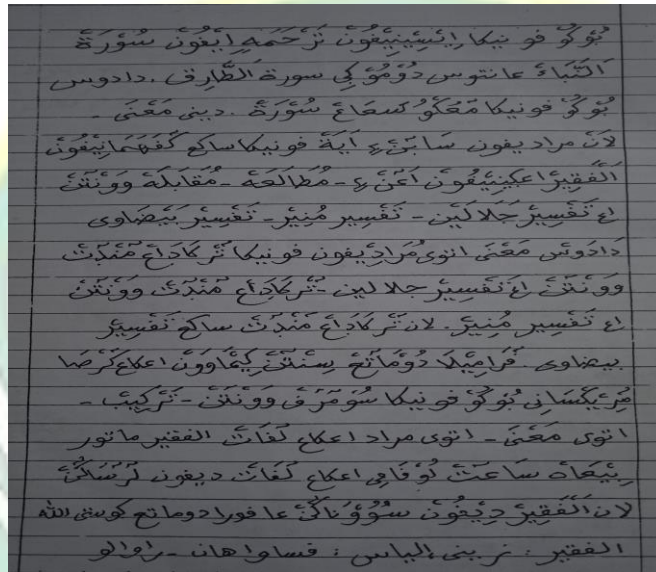 بُوكُو فونيكا إيسينيڤون تَرْجَمَه إيڤون سُوْرَةْ
النَّبَاءْ عانتوس دُوْمُوْڮِي سورة الطَّارِق . دادوس
بُوكُو فونيكا مَڠْكُوْ سَڠَاعْ سُوْرَةْ . ديني مَعْنَى -
لَانْ مراد ديڤون سَابَنْ٢ آيَةْ فونيكا ساكِڠْ كَفَهَمَانيڤُونْ
الْفَقِيرْ اڠڮينيڤون أَڠَنْ٢ - مُطَالَعَهْ - مُقَابَلَهْ وَوْنْتَنْ
اِڠْ تَفْسِيرْ جَلَالَيْن - تَفْسِيرْ مُنِيرْ - تَفْسِيرْ بَيْضَاوِى
دَادوس مَعْنَى اتوى مُرَاديڤون فونيكا تَركَادَاڠْ مَنْدَتْ
وَوْنْتَنْ اِڠْ تَفْسِيرْ جلالين - تَركَادَاڠْ مَنْدَتْ وَوْنْتَنْ
اِڠْ تَفْسِير مُنِيرْ . لان تَركَادَاڠْ مَنْدَتْ ساكِڠْ تَفْسِيرْ
بيضاوى . فَرَاميلا دُوْمَاتَڠْ سِنْتَنْ كِيمَاوَوْن اڠكاڠ كَرْصَا
مَرِيكْسَانِي بُوكُو فونيكا سُوْمَرَڤ وَوْنْتَنْ - تَرْكِيبْ -
اتوى مَعْنَى - اتوى مراد اڠكاڠ لَفَاتْ الفقير ماتور
سَاعَتْ اڠكاڠ لَفَاتْ ديڤون لَرَسَاكَنْ
لان الْفَقِيرْ دِيڤُونْ سُوْوُوْنَاكَنْ عافورا دوماتڠ ڮوستى الله
الفقير : الياس : فساواهان - راوالو